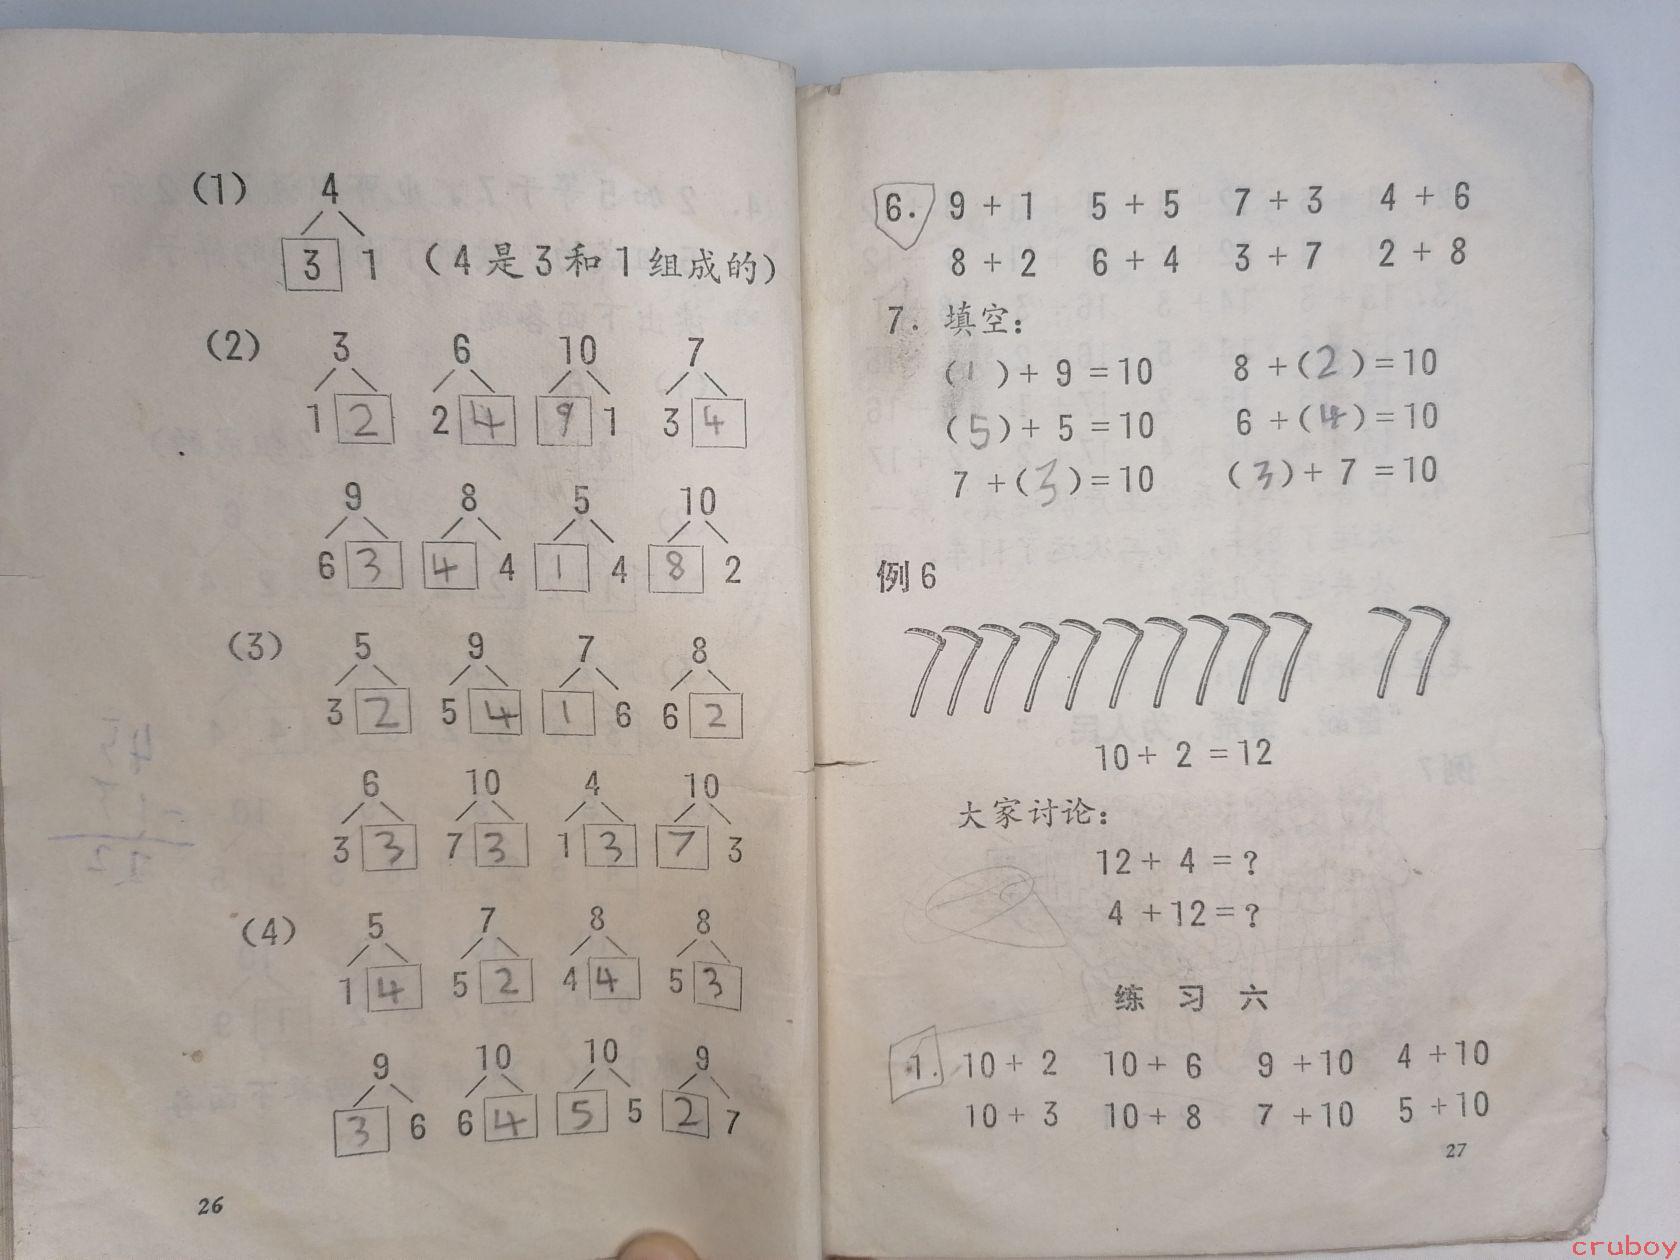 (1) 4
3 1 (4是3和1组成的)
(2) 3 6 10 7
1 2 2 4 9 1 3 4
9 8 5 10
6 3 4 4 1 4 8 2
(3) 5 9 7 8
3 2 5 4 1 6 6 2
6 10 4 10
3 3 7 3 1 3 7 3
(4) 5 7 8 8
1 4 5 2 4 4 5 3
9 10 10 9
3 6 6 4 5 5 2 7
26
6. 9+1 5+5 7+3 4+6
8+2 6+4 3+7 2+8
7. 填空:
(1)+9=10 8+(2)=10
(5)+5=10 6+(4)=10
7+(3)=10 (3)+7=10
例6
10+2=12
大家讨论:
12+4=?
4+12=?
练习六
1. 10+2 10+6 9+10 4+10
10+3 10+8 7+10 5+10
27
cruboy